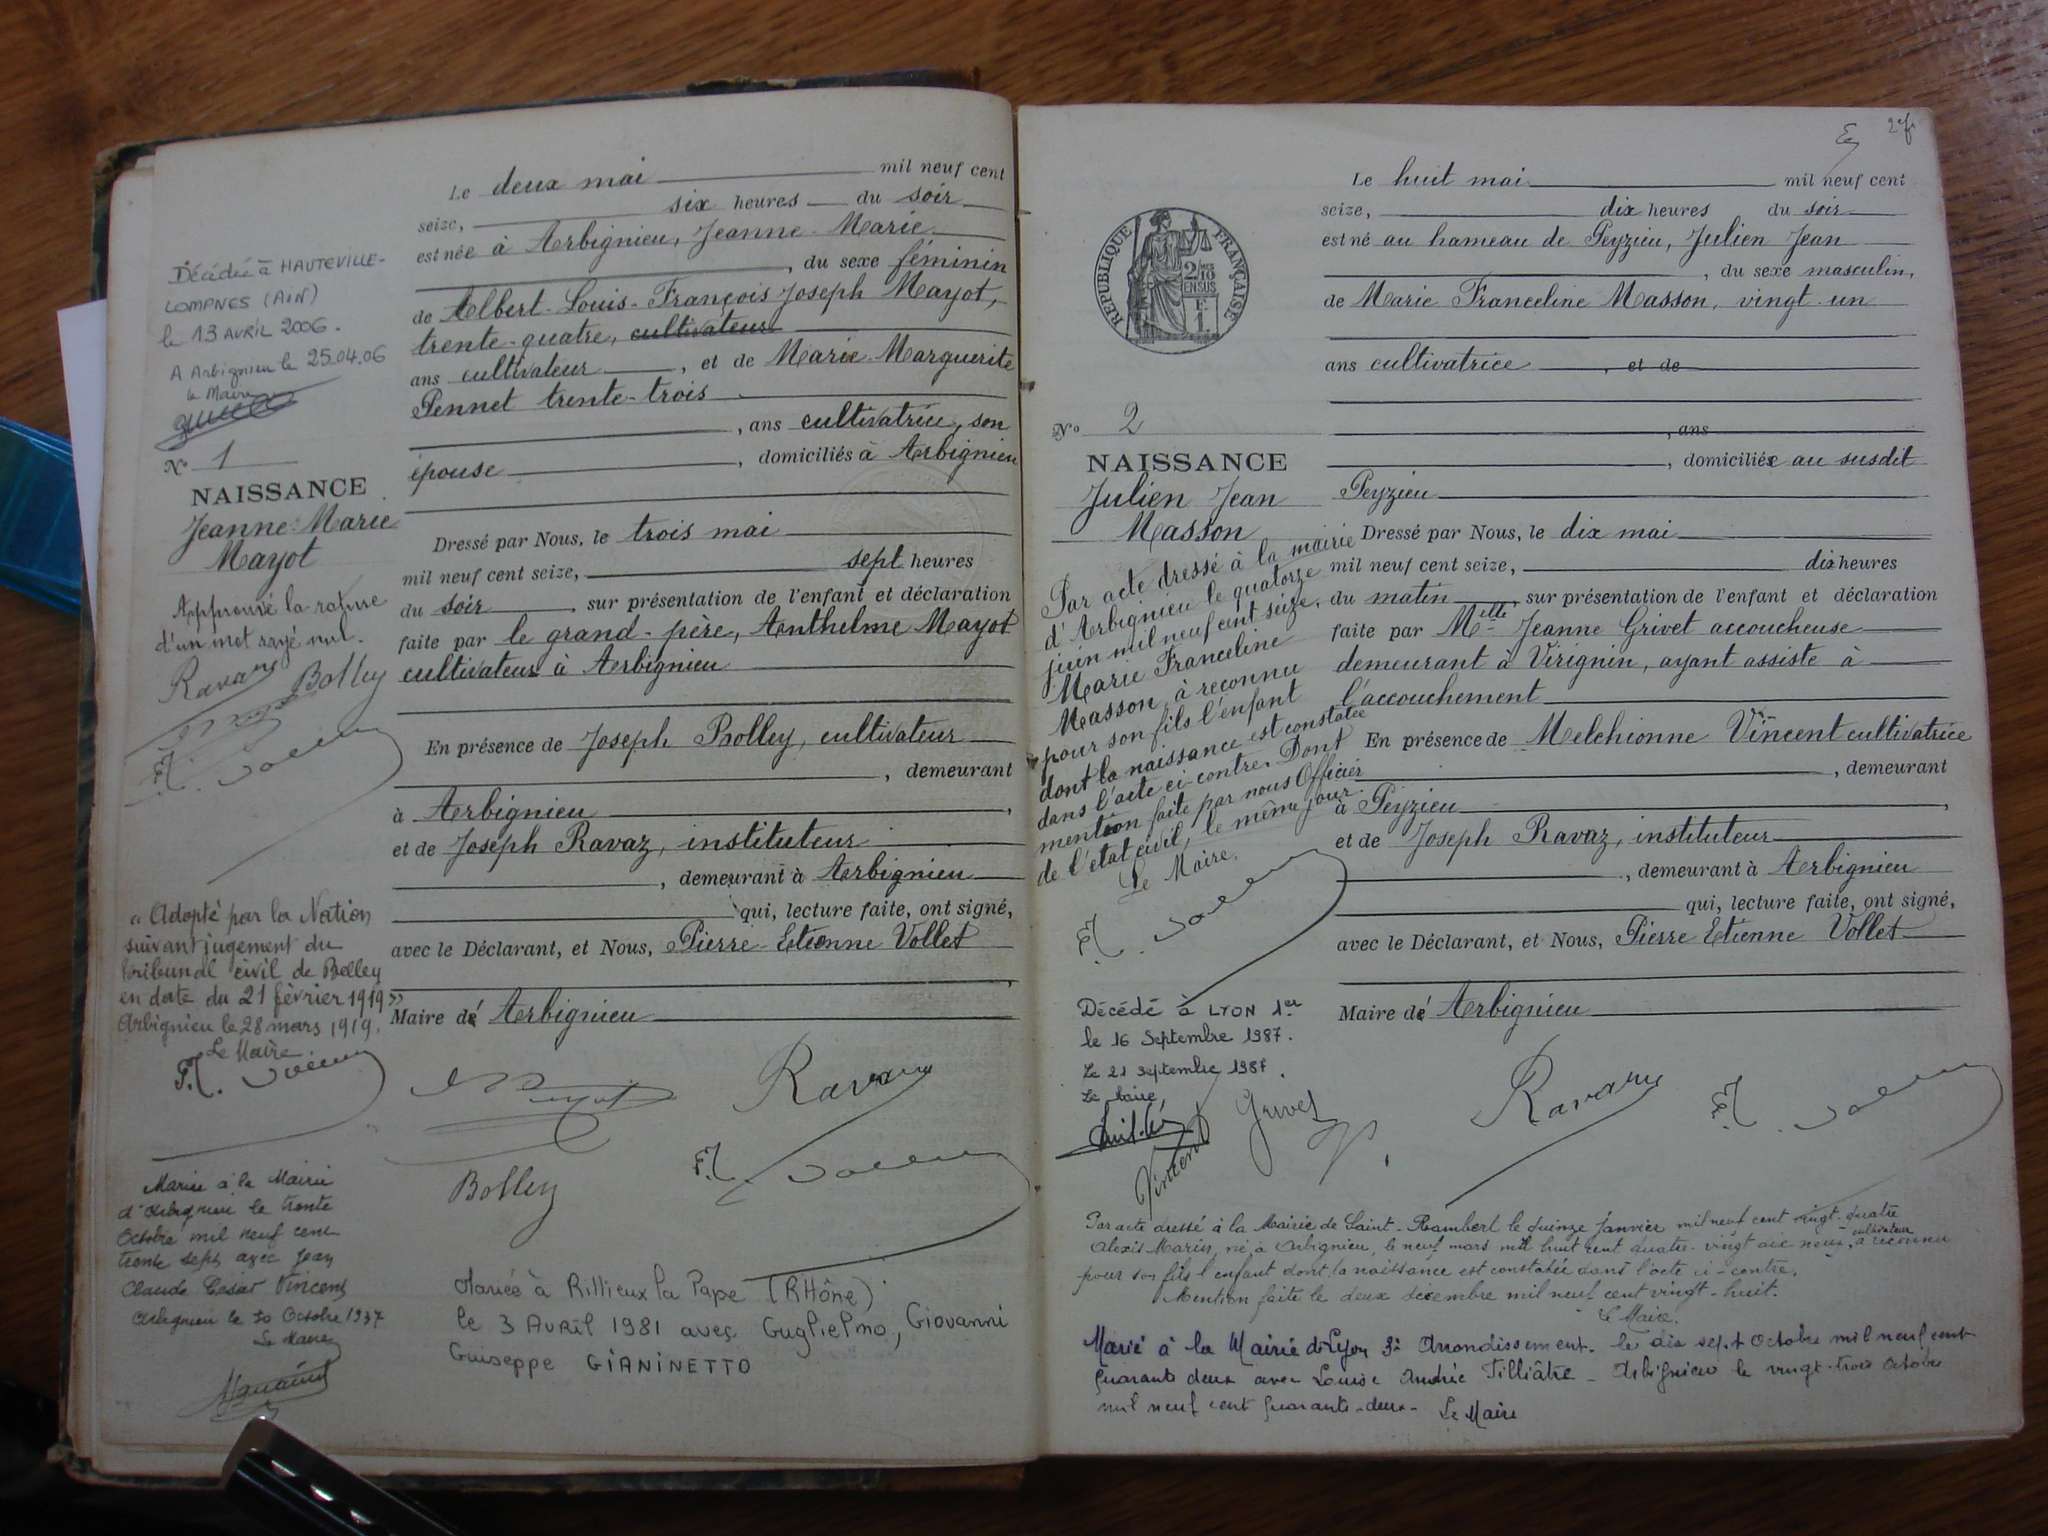 Le deux mai mil neuf cent
seize, six heures du soir
est née à Arbignieu, Jeanne-Marie
, du sexe féminin
de Albert-Louis-François Joseph Mayot,
trente-quatre, cultivateur
ans cultivateur , et de Marie-Marguerite
Pennet trente-trois
, ans cultivatrice, son
épouse , domiciliés à Arbignieu
Dressé par Nous, le trois mai
mil neuf cent seize, sept heures
du soir , sur présentation de l'enfant et déclaration
faite par le grand-père, Anthelme Mayot
cultivateur à Arbignieu
En présence de Joseph Bolley, cultivateur
, demeurant
à Arbignieu ,
et de Joseph Ravaz, instituteur
, demeurant à Arbignieu
qui, lecture faite, ont signé,
avec le Déclarant, et Nous, Pierre-Etienne Vollet
,
Maire dé Arbignieu
Ravaz
Bolley
Décédée à HAUTEVILLE-
LOMPNES (AIN)
le 13 AVRIL 2006.
A Arbignieu le 25.04.06
le Maire
No 1
NAISSANCE
Jeanne-Marie
Mayot
Approuvé la rature
d'un mot rayé nul.
Ravaz Bolley
"Adopté par la Nation
suivant jugement du
tribunal civil de Belley
en date du 21 février 1919"
Arbignieu le 28 mars 1919.
Le Maire
Mariée à la Mairie
d'Arbignieu le trente
Octobre mil neuf cent
trente sept avec Jean
Claude César Vincent
Arbignieu le 30 Octobre 1937
Le Maire
Mariée à Rillieux la Pape (RHône)
le 3 AVRIL 1981 avec Guglielmo, Giovanni
Guiseppe GIANINETTO
2
Le huit mai mil neuf cent
seize, dix heures du soir
est né au hameau de Peyzieu, Julien Jean
, du sexe masculin,
de Marie Franceline Masson, vingt-un
ans cultivatrice , et de
, ans
, domiciliée au susdit
Peyzieu
Dressé par Nous, le dix mai
mil neuf cent seize, dix heures
du matin , sur présentation de l'enfant et déclaration
faite par Melle Jeanne Grivet accoucheuse
demeurant à Virignin, ayant assisté à
l'accouchement
En présence de Melchionne Vincent cultivatrice
, demeurant
à Peyzieu ,
et de Joseph Ravaz, instituteur
, demeurant à Arbignieu
qui, lecture faite, ont signé,
avec le Déclarant, et Nous, Pierre Etienne Vollet
Maire dé Arbignieu
REPUBLIQUE FRANÇAISE
2/10 EN SUS
1F.
No 2
NAISSANCE
Julien Jean
Masson
Par acte dressé à la mairie
d'Arbignieu le quatorze
juin mil neuf cent seize,
Marie Franceline
Masson à reconnu
pour son fils l'enfant
dont la naissance est constatée
dans l'acte ci-contre. Dont
mention faite par nous Officier
de l'état civil, le même jour.
Le Maire.
Décédé à LYON 1er
le 16 Septembre 1987.
Le 21 septembre 1987.
Le Maire,
Vincent Grivet Ravaz
Par acte dressé à la Mairie de Saint-Rambert le quinze janvier mil neuf cent vingt-quatre
Alexis Marin, né à Arbignieu, le neuf mars mil huit cent quatre-vingt dix neuf, cultivateur a reconnu
pour son fils l'enfant dont la naissance est constatée dans l'acte ci-contre.
Mention faite le deux décembre mil neuf cent vingt-huit.
Le Maire.
Marié à la Mairie de Lyon 3è Arrondissement. le dix sept Octobre mil neuf cent
quarante deux avec Louise Andrée Tilliâtre - Arbignieu le vingt-trois Octobre
mil neuf cent quarante-deux- Le Maire